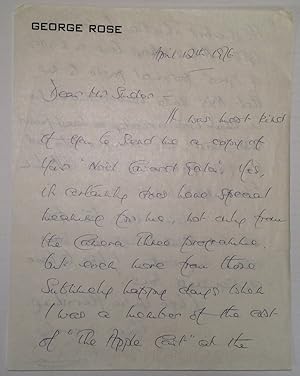 GEORGE ROSE
April 12th 1976
Dear Mr
It was most kind
of you to send me a copy of
your "Noel Coward Gala". Yes,
it certainly does have special
meaning for me, not only from
the Camera Three programme
but even more from those
sublimely happy days when
I was a member of the cast
of "The Apple Cart" at the